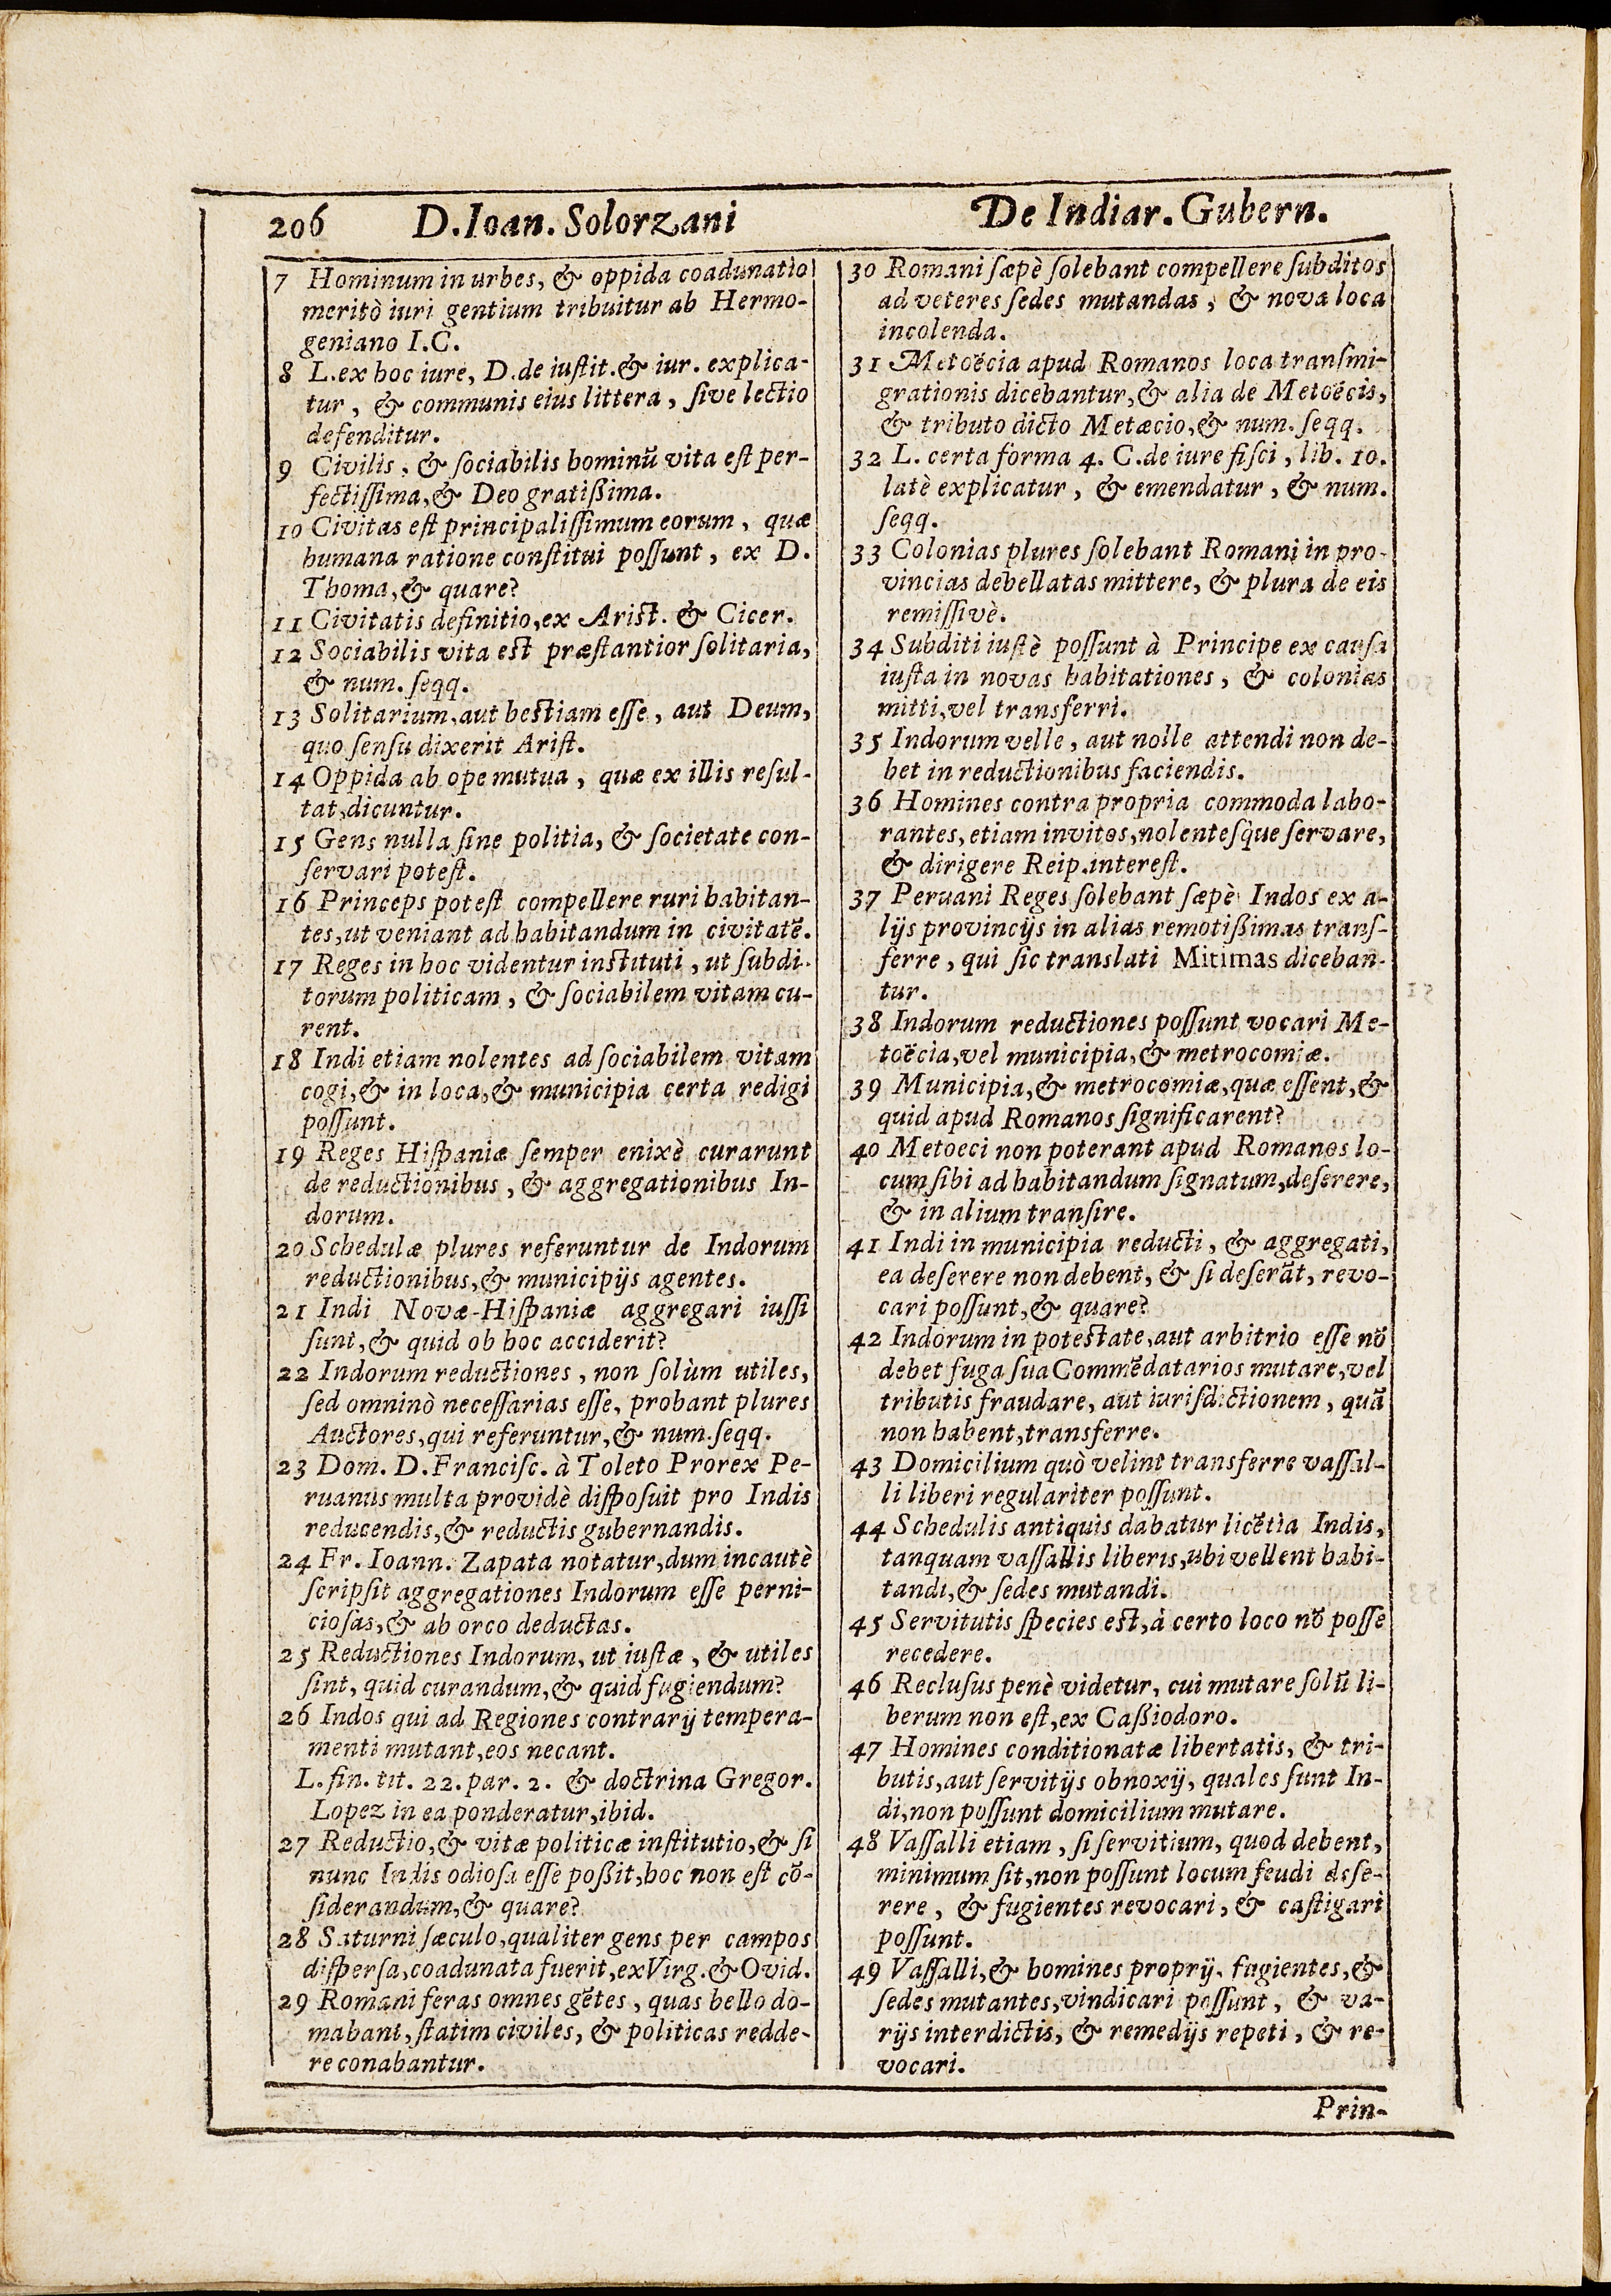 206 D. Ioan. Solorzani
De Indiar. Gubern.
7 Hominum in urbes, & oppida coadunatio
meritò iuri gentium tribuitur ab Hermo-
geniano I.C.
8 L. ex hoc iure, D. de iustit. & iur. explica-
tur, & communis eius littera, sive lectio
defenditur.
9 Civilis, & sociabilis hominũ vita est per-
fectissima, & Deo gratißima.
10 Civitas est principalissimum eorum, quæ
humana ratione constitui possunt, ex D.
Thoma, & quare?
11 Civitatis definitio, ex Arist. & Cicer.
12 Sociabilis vita est præstantior solitaria,
& num. seqq.
13 Solitarium, aut bestiam esse, aut Deum,
quo sensu dixerit Arist.
14 Oppida ab ope mutua, quæ ex illis resul-
tat, dicuntur.
15 Gens nulla sine politia, & societate con-
servari potest.
16 Princeps potest compellere ruri habitan-
tes, ut veniant ad habitandum in civitatẽ.
17 Reges in hoc videntur instituti, ut subdi-
torum politicam, & sociabilem vitam cu-
rent.
18 Indi etiam nolentes ad sociabilem vitam
cogi, & in loca, & municipia certa redigi
possunt.
19 Reges Hispaniæ semper enixè curarunt
de reductionibus, & aggregationibus In-
dorum.
20 Schedulæ plures referuntur de Indorum
reductionibus, & municipijs agentes.
21 Indi Novæ-Hispaniæ aggregari iussi
sunt, & quid ob hoc acciderit?
22 Indorum reductiones, non solùm utiles,
sed omninò necessarias esse, probant plures
Auctores, qui referuntur, & num. seqq.
23 Dom. D. Francisc. à Toleto Prorex Pe-
ruanus multa providè disposuit pro Indis
reducendis, & reductis gubernandis.
24 Fr. Ioann. Zapata notatur, dum incautè
scripsit aggregationes Indorum esse perni-
ciosas, & ab orco deductas.
25 Reductiones Indorum, ut iustæ, & utiles
sint, quid curandum, & quid fugiendum?
26 Indos qui ad Regiones contrarij tempera-
menti mutant, eos necant.
L. fin. tit. 22. par. 2. & doctrina Gregor.
Lopez in ea ponderatur, ibid.
27 Reductio, & vitæ politicæ institutio, & si
nunc Indis odiosa esse poßit, hoc non est cõ-
siderandum, & quare?
28 Saturni sæculo, qualiter gens per campos
dispersa, coadunata fuerit, ex Virg. & Ovid.
29 Romani feras omnes gẽtes, quas bello do-
mabant, statim civiles, & politicas redde-
re conabantur.
30 Romani sæpè solebant compellere subditos
ad veteres sedes mutandas, & nova loca
incolenda.
31 Metoëcia apud Romanos loca transmi-
grationis dicebantur, & alia de Metoëcis,
& tributo dicto Metæcio, & num. seqq.
32 L. certa forma 4. C. de iure fisci, lib. 10.
latè explicatur, & emendatur, & num.
seqq.
33 Colonias plures solebant Romani in pro-
vincias debellatas mittere, & plura de eis
remissivè.
34 Subditi iustè possunt à Principe ex causa
iusta in novas habitationes, & colonias
mitti, vel transferri.
35 Indorum velle, aut nolle attendi non de-
bet in reductionibus faciendis.
36 Homines contra propria commoda labo-
rantes, etiam invitos, nolentesq̀ue servare,
& dirigere Reip. interest.
37 Peruani Reges solebant sæpè Indos ex a-
lijs provincijs in alias remotißimas trans-
ferre, qui sic translati Mitimas diceban-
tur.
38 Indorum reductiones possunt vocari Me-
toëcia, vel municipia, & metrocomiæ.
39 Municipia, & metrocomiæ, quæ essent, &
quid apud Romanos significarent?
40 Metoeci non poterant apud Romanos lo-
cum sibi ad habitandum signatum, deserere,
& in alium transire.
41 Indi in municipia reducti, & aggregati,
ea deserere non debent, & si deserãt, revo-
cari possunt, & quare?
42 Indorum in potestate, aut arbitrio esse nõ
debet fuga sua Commẽdatarios mutare, vel
tributis fraudare, aut iurisdictionem, quã
non habent, transferre.
43 Domicilium quò velint transferre vassal-
li liberi regulariter possunt.
44 Schedulis antiquis dabatur licẽtia Indis,
tanquam vassallis liberis, ubi vellent habi-
tandi, & sedes mutandi.
45 Servitutis species est, à certo loco nõ posse
recedere.
46 Reclusus penè videtur, cui mutare solũ li-
berum non est, ex Caßiodoro.
47 Homines conditionatæ libertatis, & tri-
butis, aut servitijs obnoxij, quales sunt In-
di, non possunt domicilium mutare.
48 Vassalli etiam, si servitium, quod debent,
minimum sit, non possunt locum feudi dese-
rere, & fugientes revocari, & castigari
possunt.
49 Vassalli, & homines proprij, fugientes, &
sedes mutantes, vindicari possunt, & va-
rijs interdictis, & remedijs repeti, & re-
vocari.
Prin-